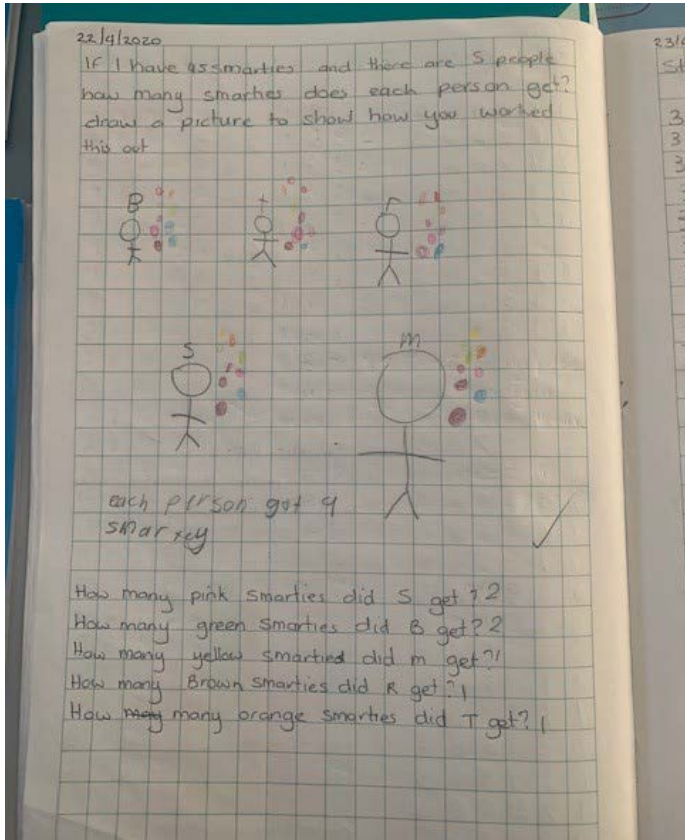 22/4/2020
If I have 45 smarties and there are 5 people
how many smarties does each person get?
draw a picture to show how you worked
this out
B t r
S m
each person got 9
smarxey
How many pink smarties did S get? 2
How many green smarties did B get? 2
How many yellow smarties did m get? 1
How many Brown smarties did R get? 1
How many many orange smarties did T get? 1
23/
St
3
3
3